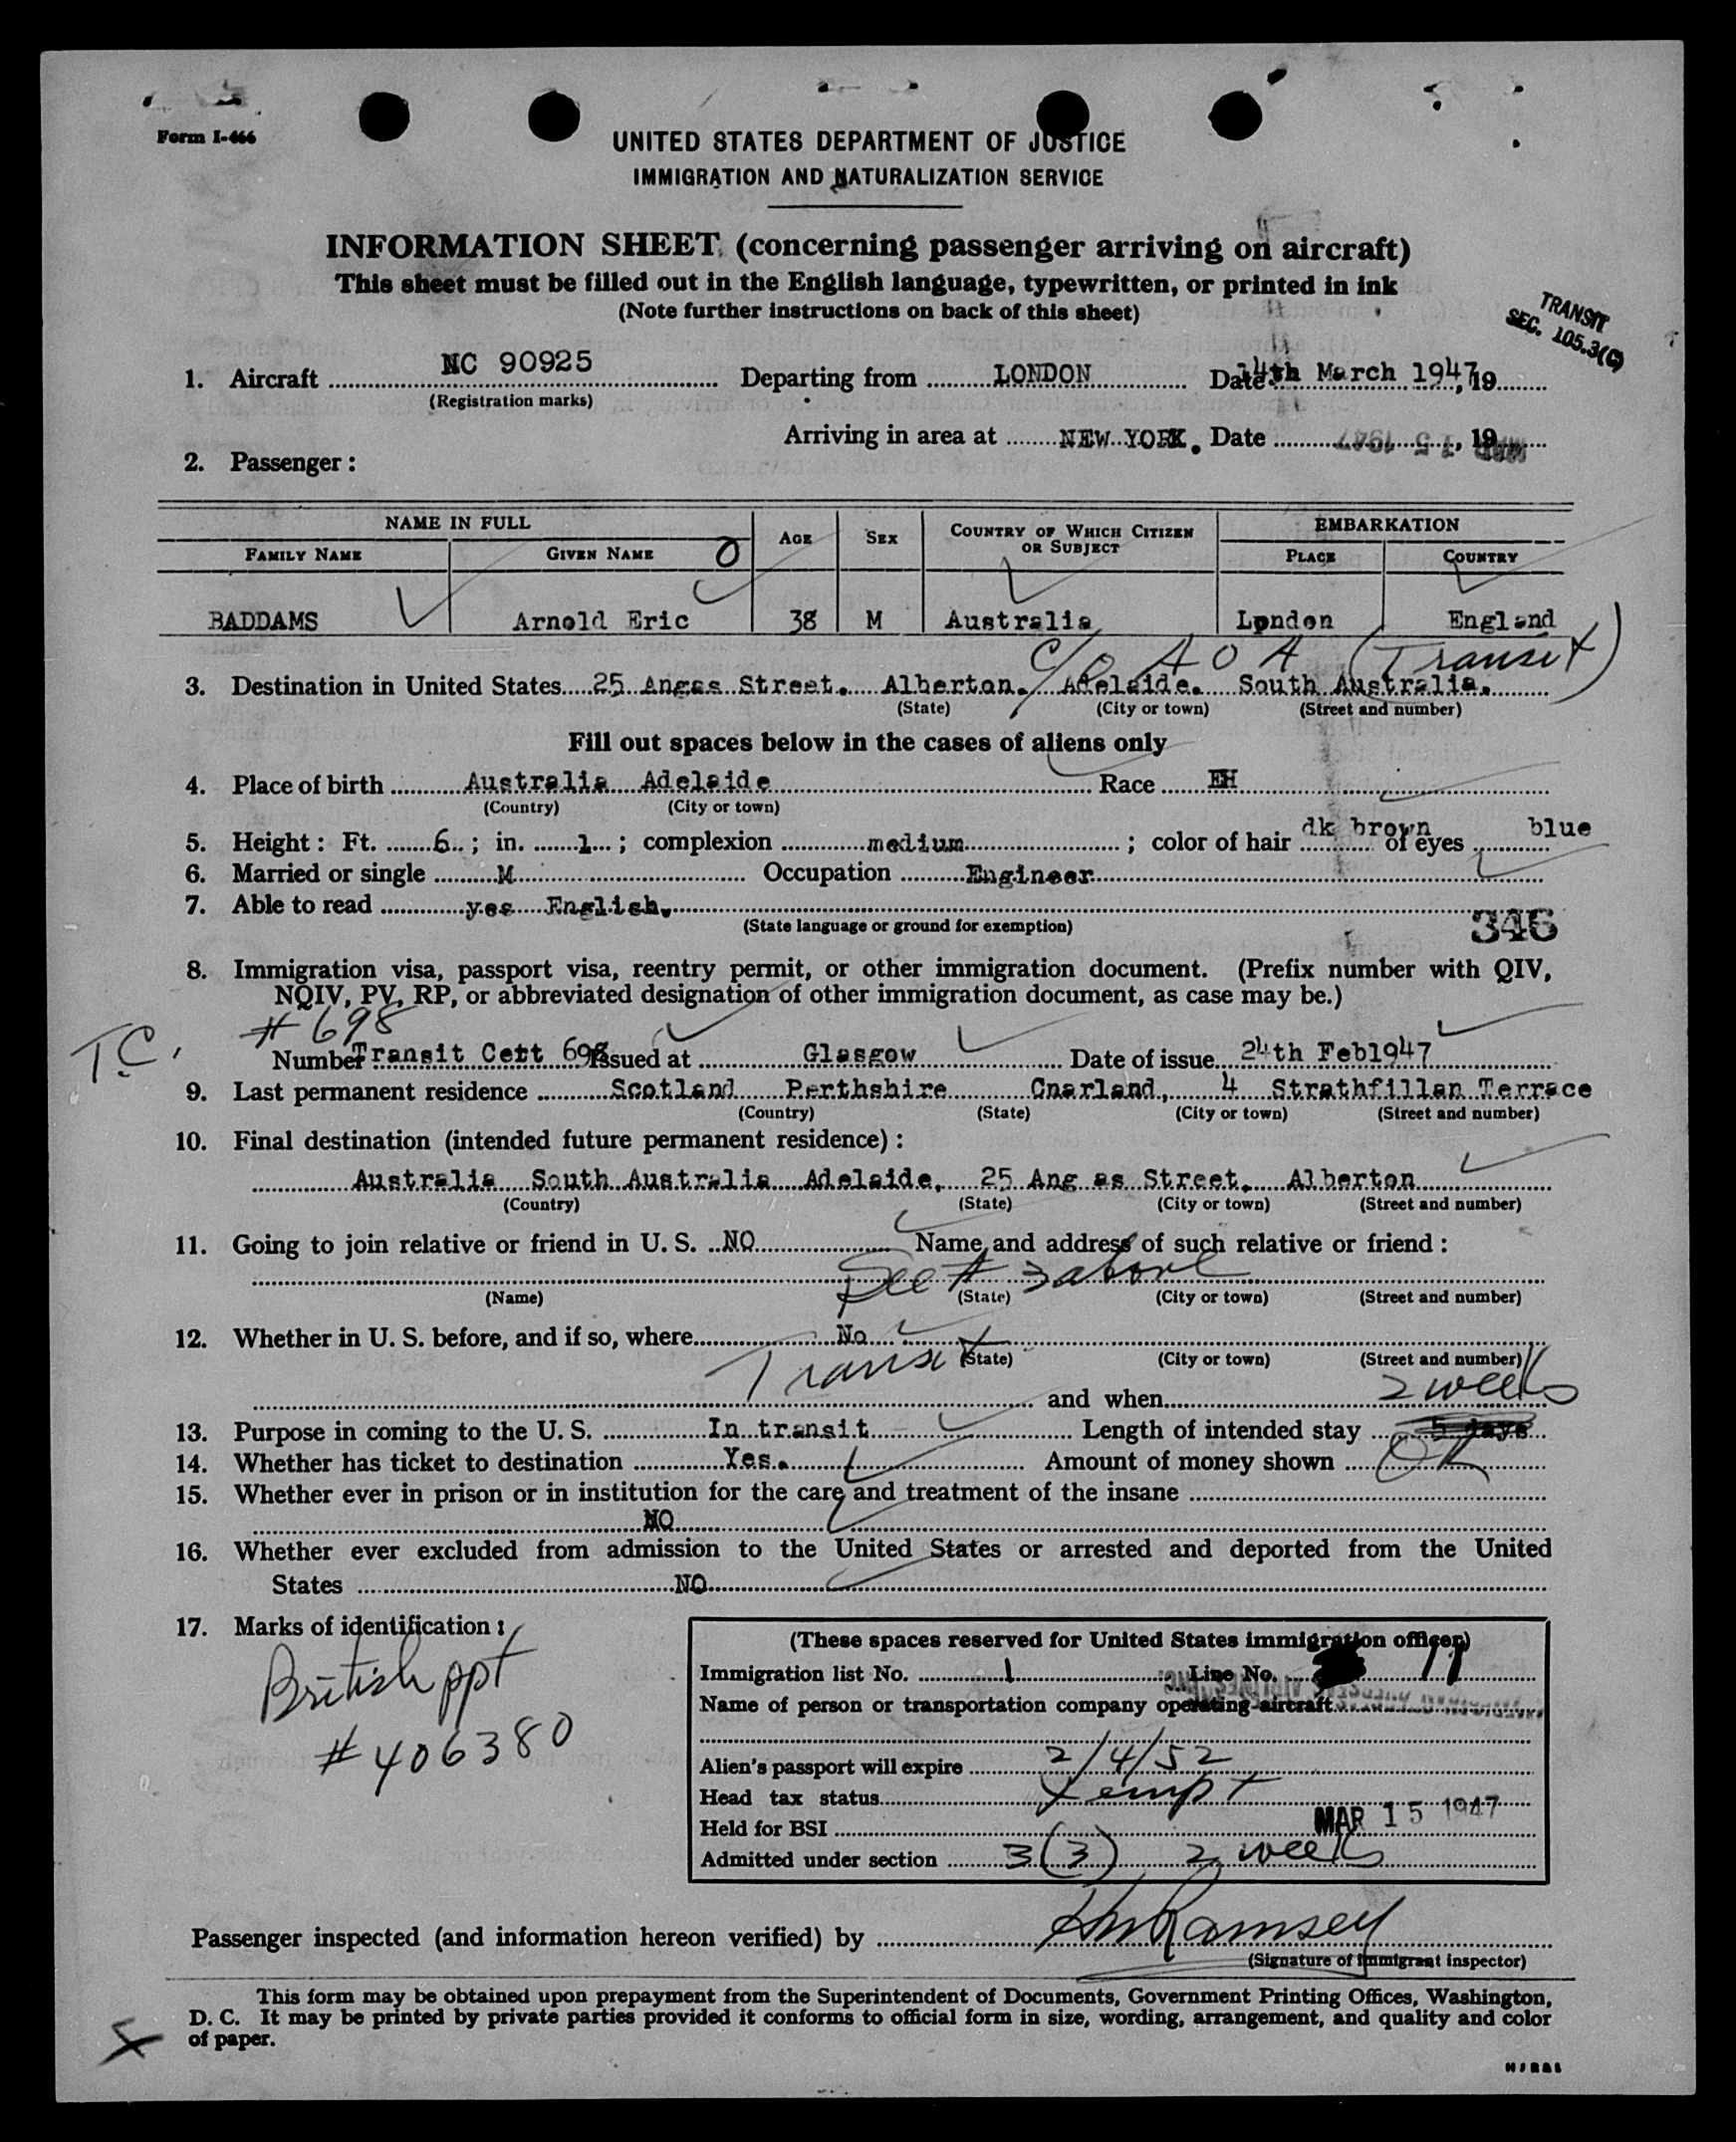 Form I-466
UNITED STATES DEPARTMENT OF JUSTICE
IMMIGRATION AND NATURALIZATION SERVICE
INFORMATION SHEET (concerning passenger arriving on aircraft)
This sheet must be filled out in the English language, typewritten, or printed in ink
(Note further instructions on back of this sheet)
TRANSIT
SEC. 105.3(C)
1. Aircraft NC 90925 Departing from LONDON Date 14th March 1947, 19
(Registration marks)
Arriving in area at NEW YORK. Date MAR 15 1947, 19
2. Passenger:
NAME IN FULL AGE SEX COUNTRY OF WHICH CITIZEN OR SUBJECT EMBARKATION
FAMILY NAME GIVEN NAME O PLACE COUNTRY
BADDAMS Arnold Eric 38 M Australia London England
c/o A O A (Transit)
3. Destination in United States 25 Angas Street. Alberton. Adelaide. South Australia.
(State) (City or town) (Street and number)
Fill out spaces below in the cases of aliens only
4. Place of birth Australia Adelaide Race EH
(Country) (City or town)
5. Height: Ft. 6; in. 1; complexion medium; color of hair dk brown of eyes blue
6. Married or single M Occupation Engineer
7. Able to read yes English.
(State language or ground for exemption)
346
8. Immigration visa, passport visa, reentry permit, or other immigration document. (Prefix number with QIV,
NQIV, PV, RP, or abbreviated designation of other immigration document, as case may be.)
T.C. # 698
Number Transit Cert 698 Issued at Glasgow Date of issue 24th Feb1947
9. Last permanent residence Scotland Perthshire Cnarland, 4 Strathfillan Terrace
(Country) (State) (City or town) (Street and number)
10. Final destination (intended future permanent residence):
Australia South Australia Adelaide. 25 Ang as Street. Alberton
(Country) (State) (City or town) (Street and number)
11. Going to join relative or friend in U. S. NO Name and address of such relative or friend:
See # 3 above
(Name) (State) (City or town) (Street and number)
12. Whether in U. S. before, and if so, where No
(State) (City or town) (Street and number)
Transit and when 2 weeks
13. Purpose in coming to the U. S. In transit Length of intended stay 5 days
14. Whether has ticket to destination Yes. Amount of money shown OK
15. Whether ever in prison or in institution for the care and treatment of the insane
NO
16. Whether ever excluded from admission to the United States or arrested and deported from the United
States NO
17. Marks of identification:
British ppt
# 406380
(These spaces reserved for United States immigration officer)
Immigration list No. 1 Line No. 11
Name of person or transportation company operating aircraft
Alien's passport will expire 2/4/52
Head tax status Xempt
Held for BSI MAR 15 1947
Admitted under section 3(3) 2 weeks
Passenger inspected (and information hereon verified) by HMRamsey
(Signature of immigrant inspector)
This form may be obtained upon prepayment from the Superintendent of Documents, Government Printing Offices, Washington,
D. C. It may be printed by private parties provided it conforms to official form in size, wording, arrangement, and quality and color
of paper.